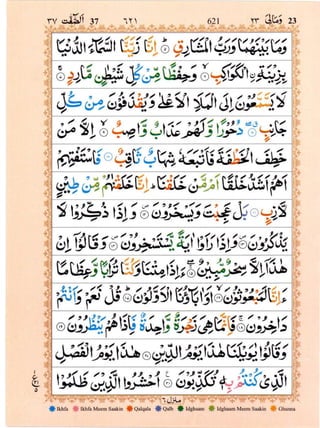 37 الصّٰٓفّٰت ٣٧ ٦٢١ 621 وَمَالِیَ ٢٣ 23
وَمَا بَيْنَهُمَا وَرَبُّ الْمَشَارِقِ ۝ اِنَّا زَيَّنَّا السَّمَآءَ الدُّنْيَا
بِزِيْنَةِ ۨالْكَوَاكِبِ ۝ وَحِفْظًا مِّنْ كُلِّ شَيْطٰنٍ مَّارِدٍ ۝
لَا يَسَّمَّعُوْنَ اِلَى الْمَلَاِ الْاَعْلٰى وَيُقْذَفُوْنَ مِنْ كُلِّ
جَانِبٍ ۝ دُحُوْرًا وَّلَهُمْ عَذَابٌ وَّاصِبٌ ۝ اِلَّا مَنْ
خَطِفَ الْخَطْفَةَ فَاَتْبَعَهٗ شِهَابٌ ثَاقِبٌ ۝ فَاسْتَفْتِهِمْ
اَهُمْ اَشَدُّ خَلْقًا اَمْ مَّنْ خَلَقْنَا ؕ اِنَّا خَلَقْنٰهُمْ مِّنْ طِيْنٍ
لَّازِبٍ ۝ بَلْ عَجِبْتَ وَيَسْخَرُوْنَ ۝ وَاِذَا ذُكِّرُوْا لَا
يَذْكُرُوْنَ ۝ وَاِذَا رَاَوْا اٰيَةً يَّسْتَسْخِرُوْنَ ۝ وَقَالُوْٓا اِنْ
هٰذَآ اِلَّا سِحْرٌ مُّبِيْنٌ ۝ ءَاِذَا مِتْنَا وَكُنَّا تُرَابًا وَّعِظَامًا
ءَاِنَّا لَمَبْعُوْثُوْنَ ۝ اَوَاٰبَآؤُنَا الْاَوَّلُوْنَ ۝ قُلْ نَعَمْ وَاَنْتُمْ
دَاخِرُوْنَ ۝ فَاِنَّمَا هِيَ زَجْرَةٌ وَّاحِدَةٌ فَاِذَا هُمْ يَنْظُرُوْنَ ۝
وَقَالُوْا يٰوَيْلَنَا هٰذَا يَوْمُ الدِّيْنِ ۝ هٰذَا يَوْمُ الْفَصْلِ
الَّذِيْ كُنْتُمْ بِهٖ تُكَذِّبُوْنَ ۝ اُحْشُرُوا الَّذِيْنَ ظَلَمُوْا
منزل ٦
Ikhfa Ikhfa Meem Saakin Qalqala Qalb Idghaam Idghaam Meem Saakin Ghunna